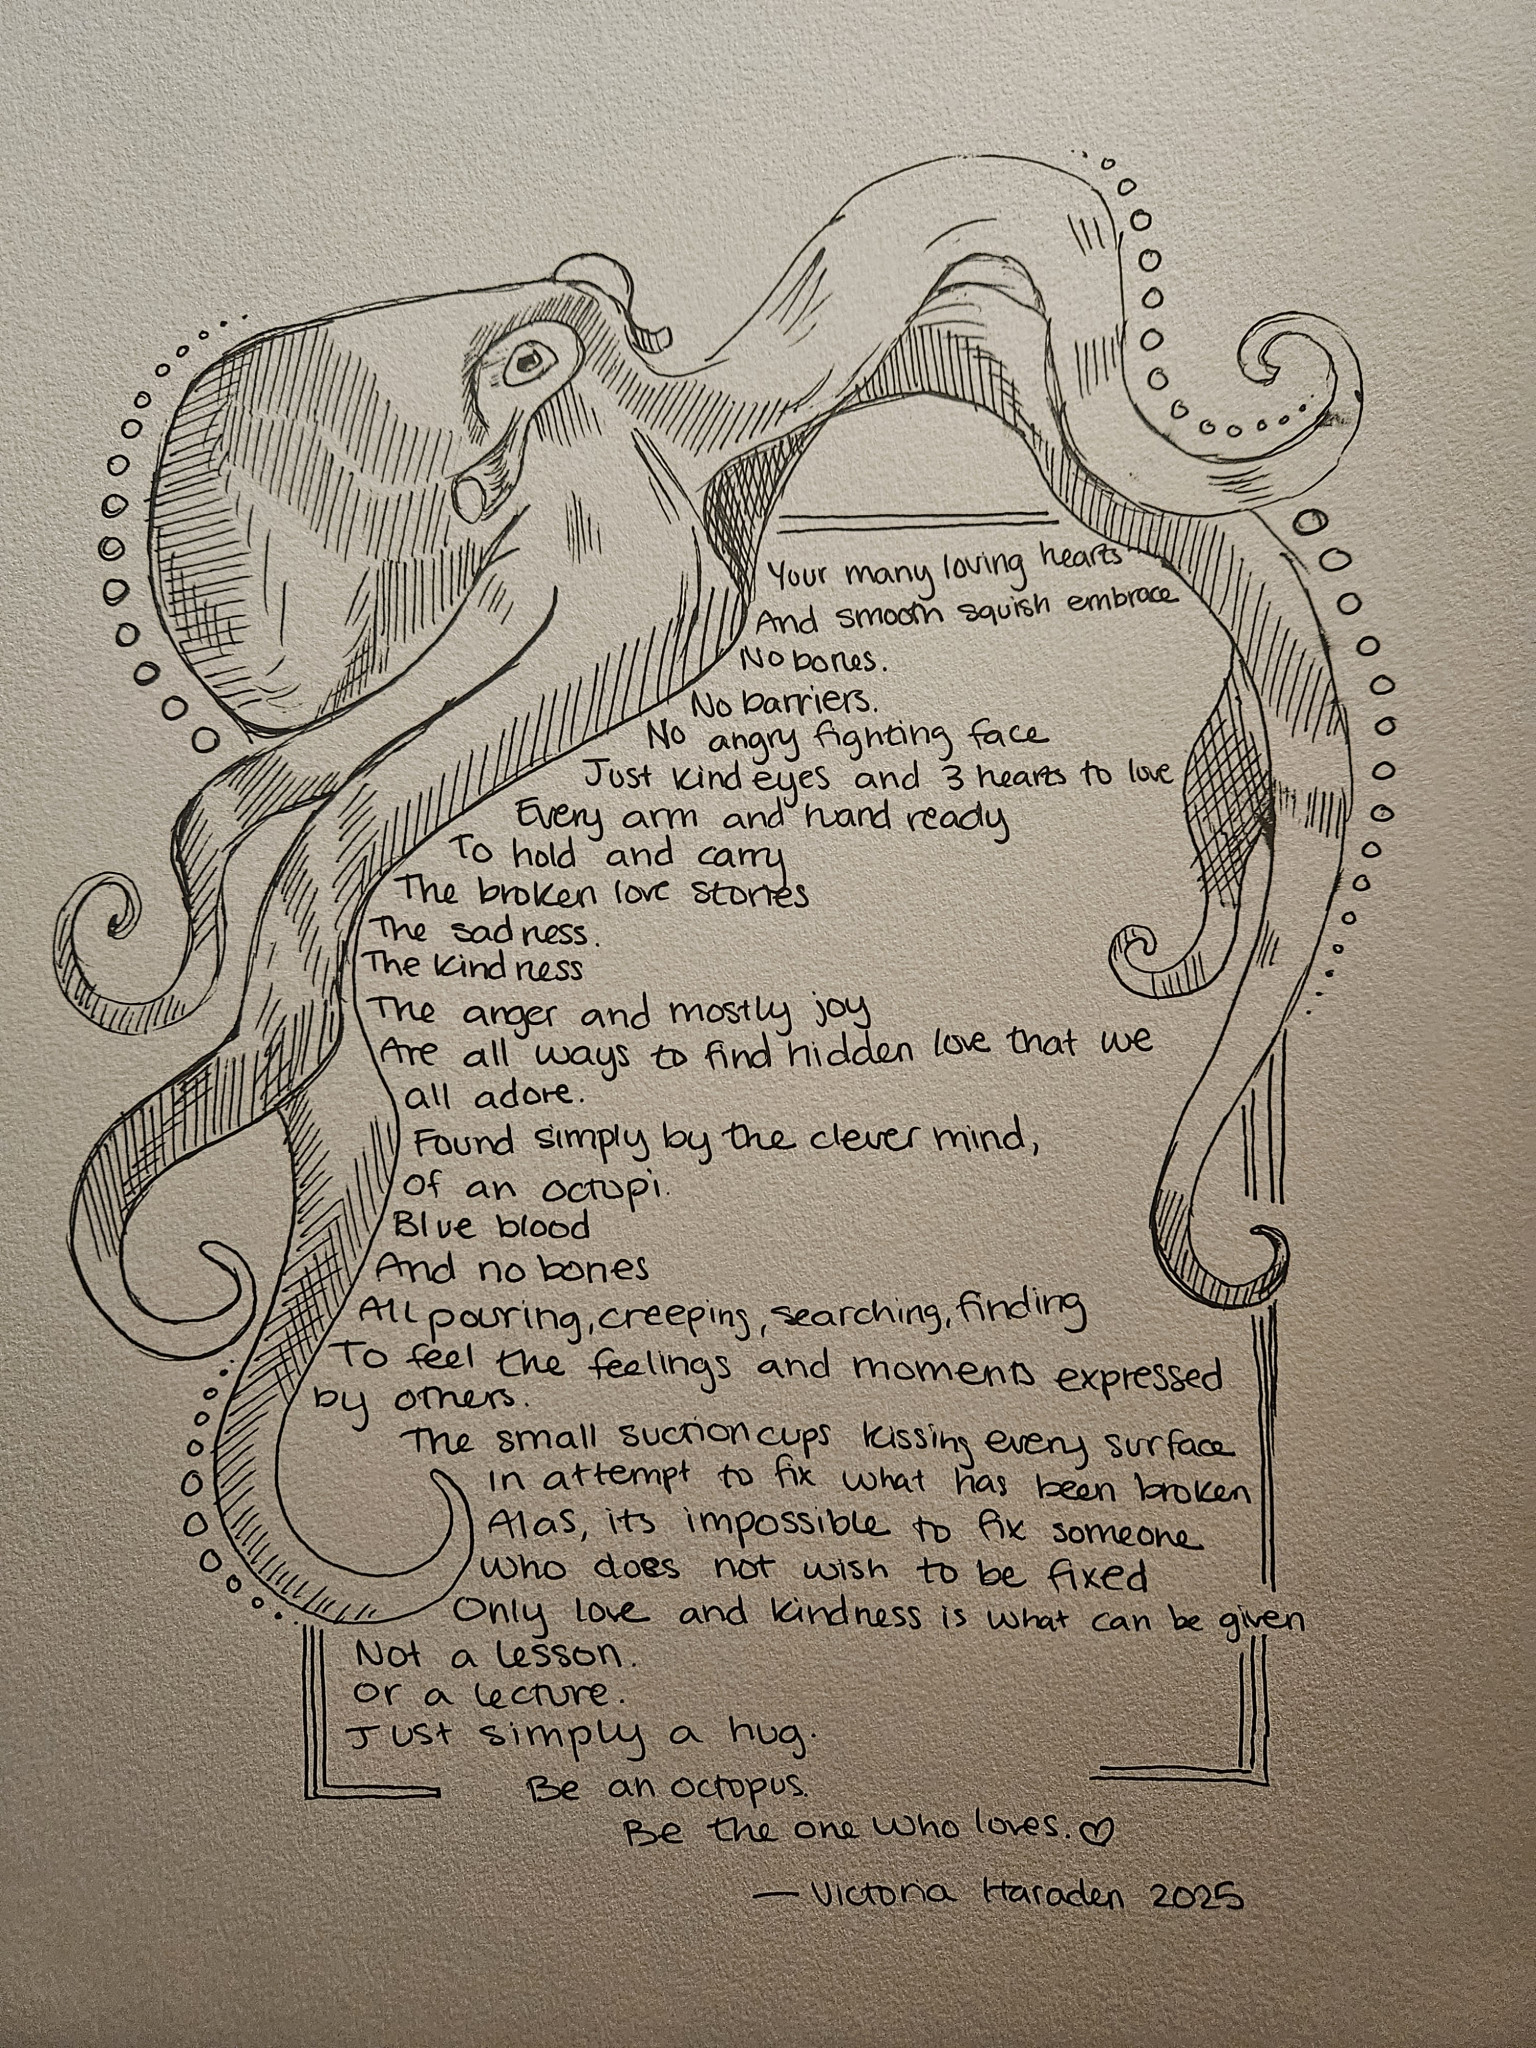 Your many loving hearts
And smooth squish embrace
No bones.
No barriers.
No angry fighting face
Just kind eyes and 3 hearts to love
Every arm and hand ready
To hold and carry
The broken love stories
The sadness.
The kindness
The anger and mostly joy
Are all ways to find hidden love that we
all adore.
Found simply by the clever mind,
Of an octopi.
Blue blood
And no bones
All pouring, creeping, searching, finding
To feel the feelings and moments expressed
by others.
The small suction cups kissing every surface
in attempt to fix what has been broken
Alas, its impossible to fix someone
who does not wish to be fixed
Only love and kindness is what can be given
Not a lesson.
Or a lecture.
Just simply a hug.
Be an octopus.
Be the one who loves. ♡
— Victoria Haraden 2025